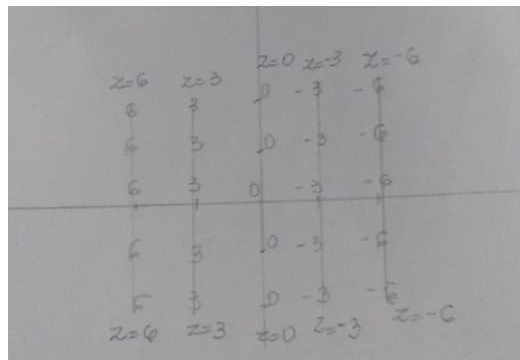 z=6 z=3 z=0 z=-3 z=-6
6 3 0 -3 -6
6 3 0 -3 -6
6 3 0 -3 -6
6 3 0 -3 -6
6 3 0 -3 -6
z=6 z=3 z=0 z=-3 z=-6